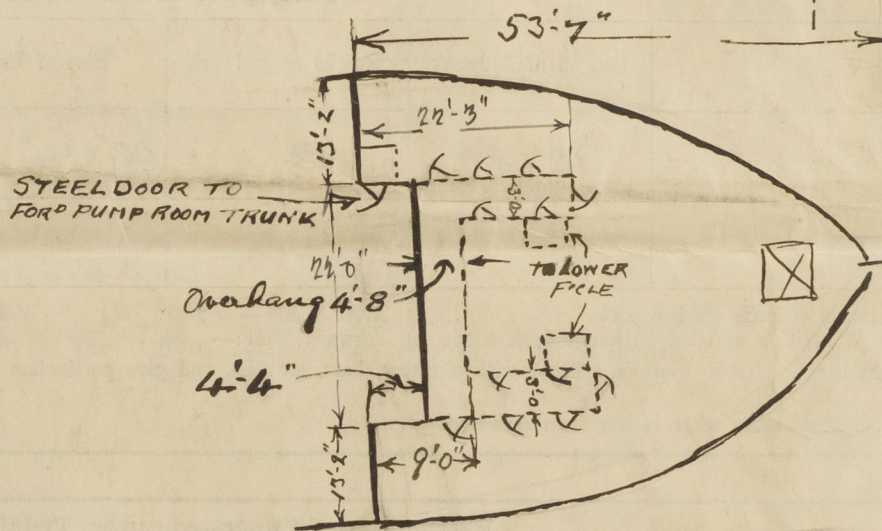 53'-7"
22'-3"
13'-2"
STEEL DOOR TO
FORD PUMP ROOM TRUNK
3'-0"
22'-0"
TO LOWER
F'CLE
Overhang 4'-8"
4'-4"
3'-0"
9'-0"
13'-2"